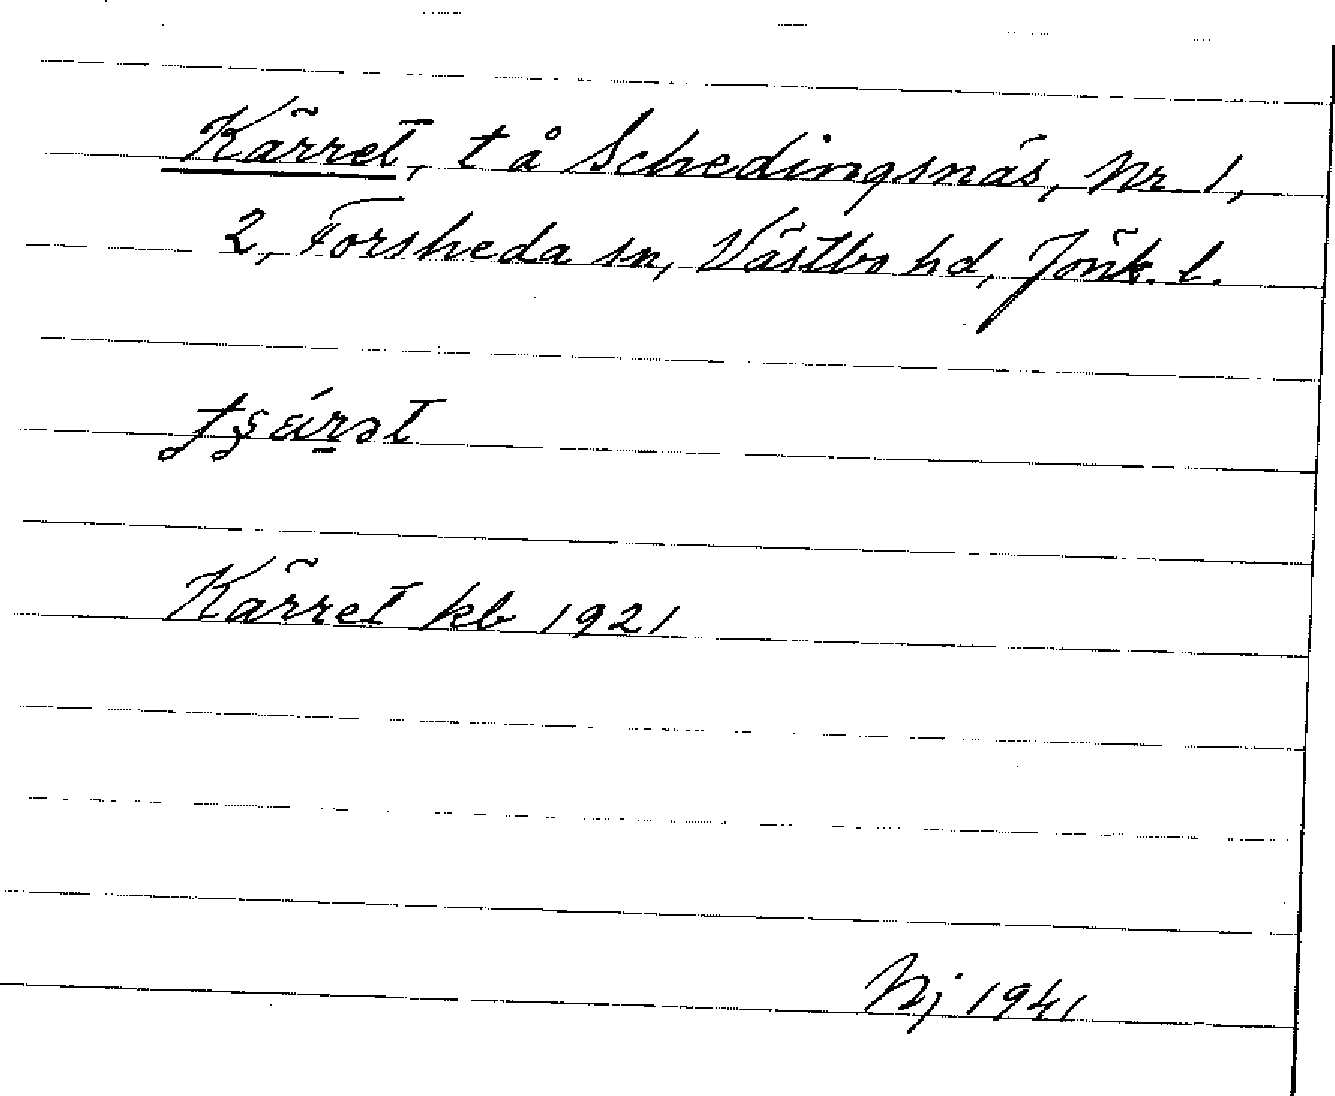 Kärret, t å Schedingsnäs, Nr 1,
2, Forsheda sn, Västbo hd, Jönk. l.
Kärret kb 1921
Nj 1941